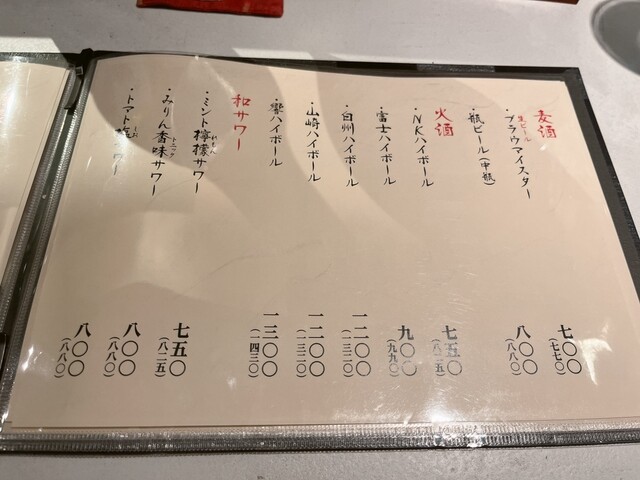 麦酒
・生ビール
ブラウマイスター
七〇〇
(七七〇)
・瓶ビール(中瓶)
八〇〇
(八八〇)
火酒
・NKハイボール
七五〇
(八二五)
・富士ハイボール
九〇〇
(九九〇)
・白州ハイボール
一二〇〇
(一三二〇)
・山崎ハイボール
一二〇〇
(一三二〇)
・響ハイボール
一三〇〇
(一四三〇)
和サワー
・ミント檸檬サワー
七五〇
(八二五)
・みりん香味サワー
八〇〇
(八八〇)
・トマト
ワー
八〇〇
(八八〇)